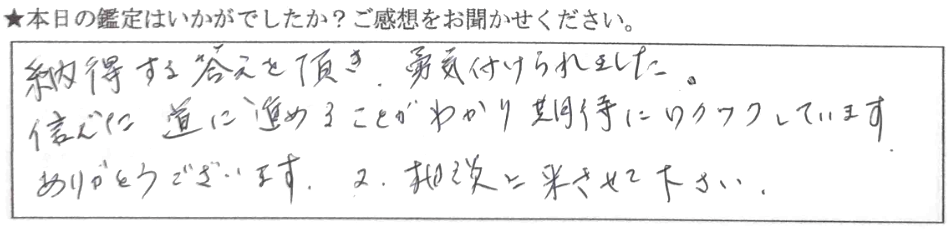 ★本日の鑑定はいかがでしたか？ご感想をお聞かせください。
納得する答えを頂き、勇気付けられました。
信じた道に進めることがわかり期待にワクワクしています。
ありがとうございます。又、相談に来させて下さい。